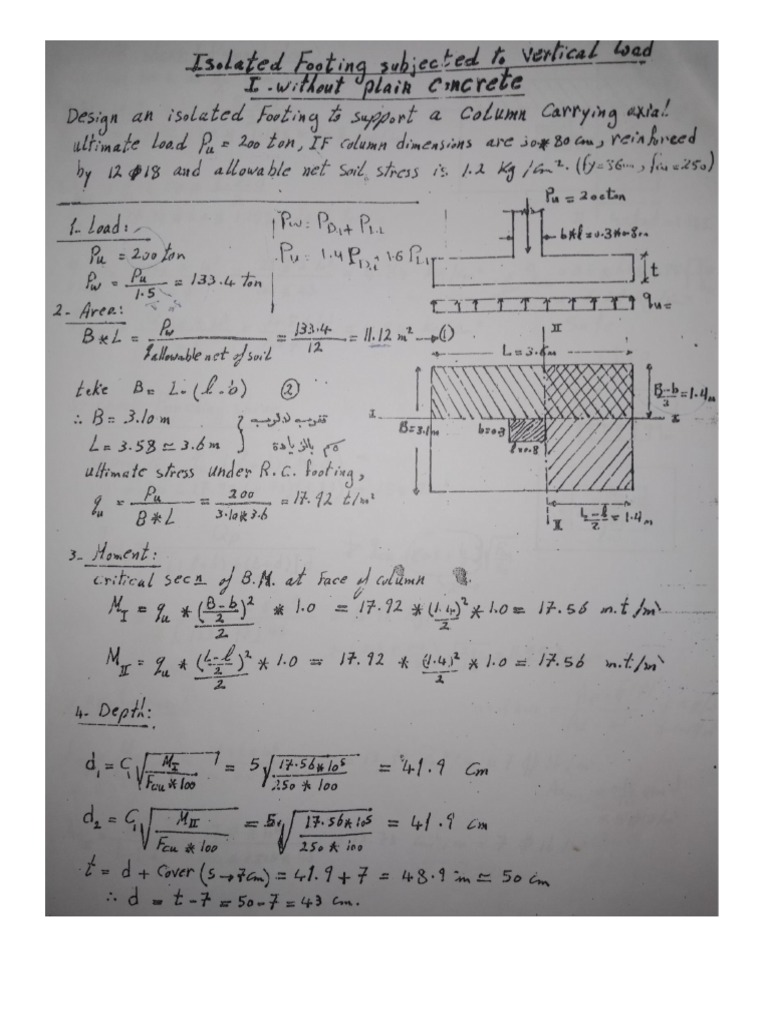 Isolated Footing subjected to vertical load
I-without plain concrete
Design an isolated Footing to support a column carrying axial
ultimate load Pu = 200 ton, IF column dimensions are 30*80 cm, reinforced
by 12 φ 18 and allowable net soil stress is 1.2 kg/cm². (fy=36 , fcu=250)
1- Load:
Pu = 200 ton
Pw = Pu/1.5 = 133.4 ton
Pw = PD.L + PL.L
Pu = 1.4 PD.L + 1.6 PL.L
Pu = 200 ton
b*l = 0.3*0.8m
t
qu =
2- Area:
B*L = Pw/qallowable net of soil = 133.4/12 = 11.12 m² → (1)
take B = L - (l-b) (2)
∴ B = 3.10 m
L = 3.58 ≃ 3.6 m
ultimate stress under R.C. footing,
qu = Pu/B*L = 200/3.10*3.6 = 17.92 t/m²
II
L = 3.6 m
B-b/2 = 1.4m
I I
B=3.1m
b=0.3
l=0.8
L-l/2 = 1.4m
II
3- Moment:
critical secn of B.M. at face of column
MI = qu * (B-b/2)²/2 * 1.0 = 17.92 * (1.4)²/2 * 1.0 = 17.56 m.t/m
MII = qu * (L-l/2)²/2 * 1.0 = 17.92 * (1.4)²/2 * 1.0 = 17.56 m.t/m
4- Depth:
d1 = C1 √(MI/Fcu*100) = 5 √(17.56*10⁵/250*100) = 41.9 cm
d2 = C1 √(MII/Fcu*100) = 5 √(17.56*10⁵/250*100) = 41.9 cm
t = d + cover (5→7cm) = 41.9 + 7 = 48.9 ≃ 50 cm
∴ d = t - 7 = 50 - 7 = 43 cm.